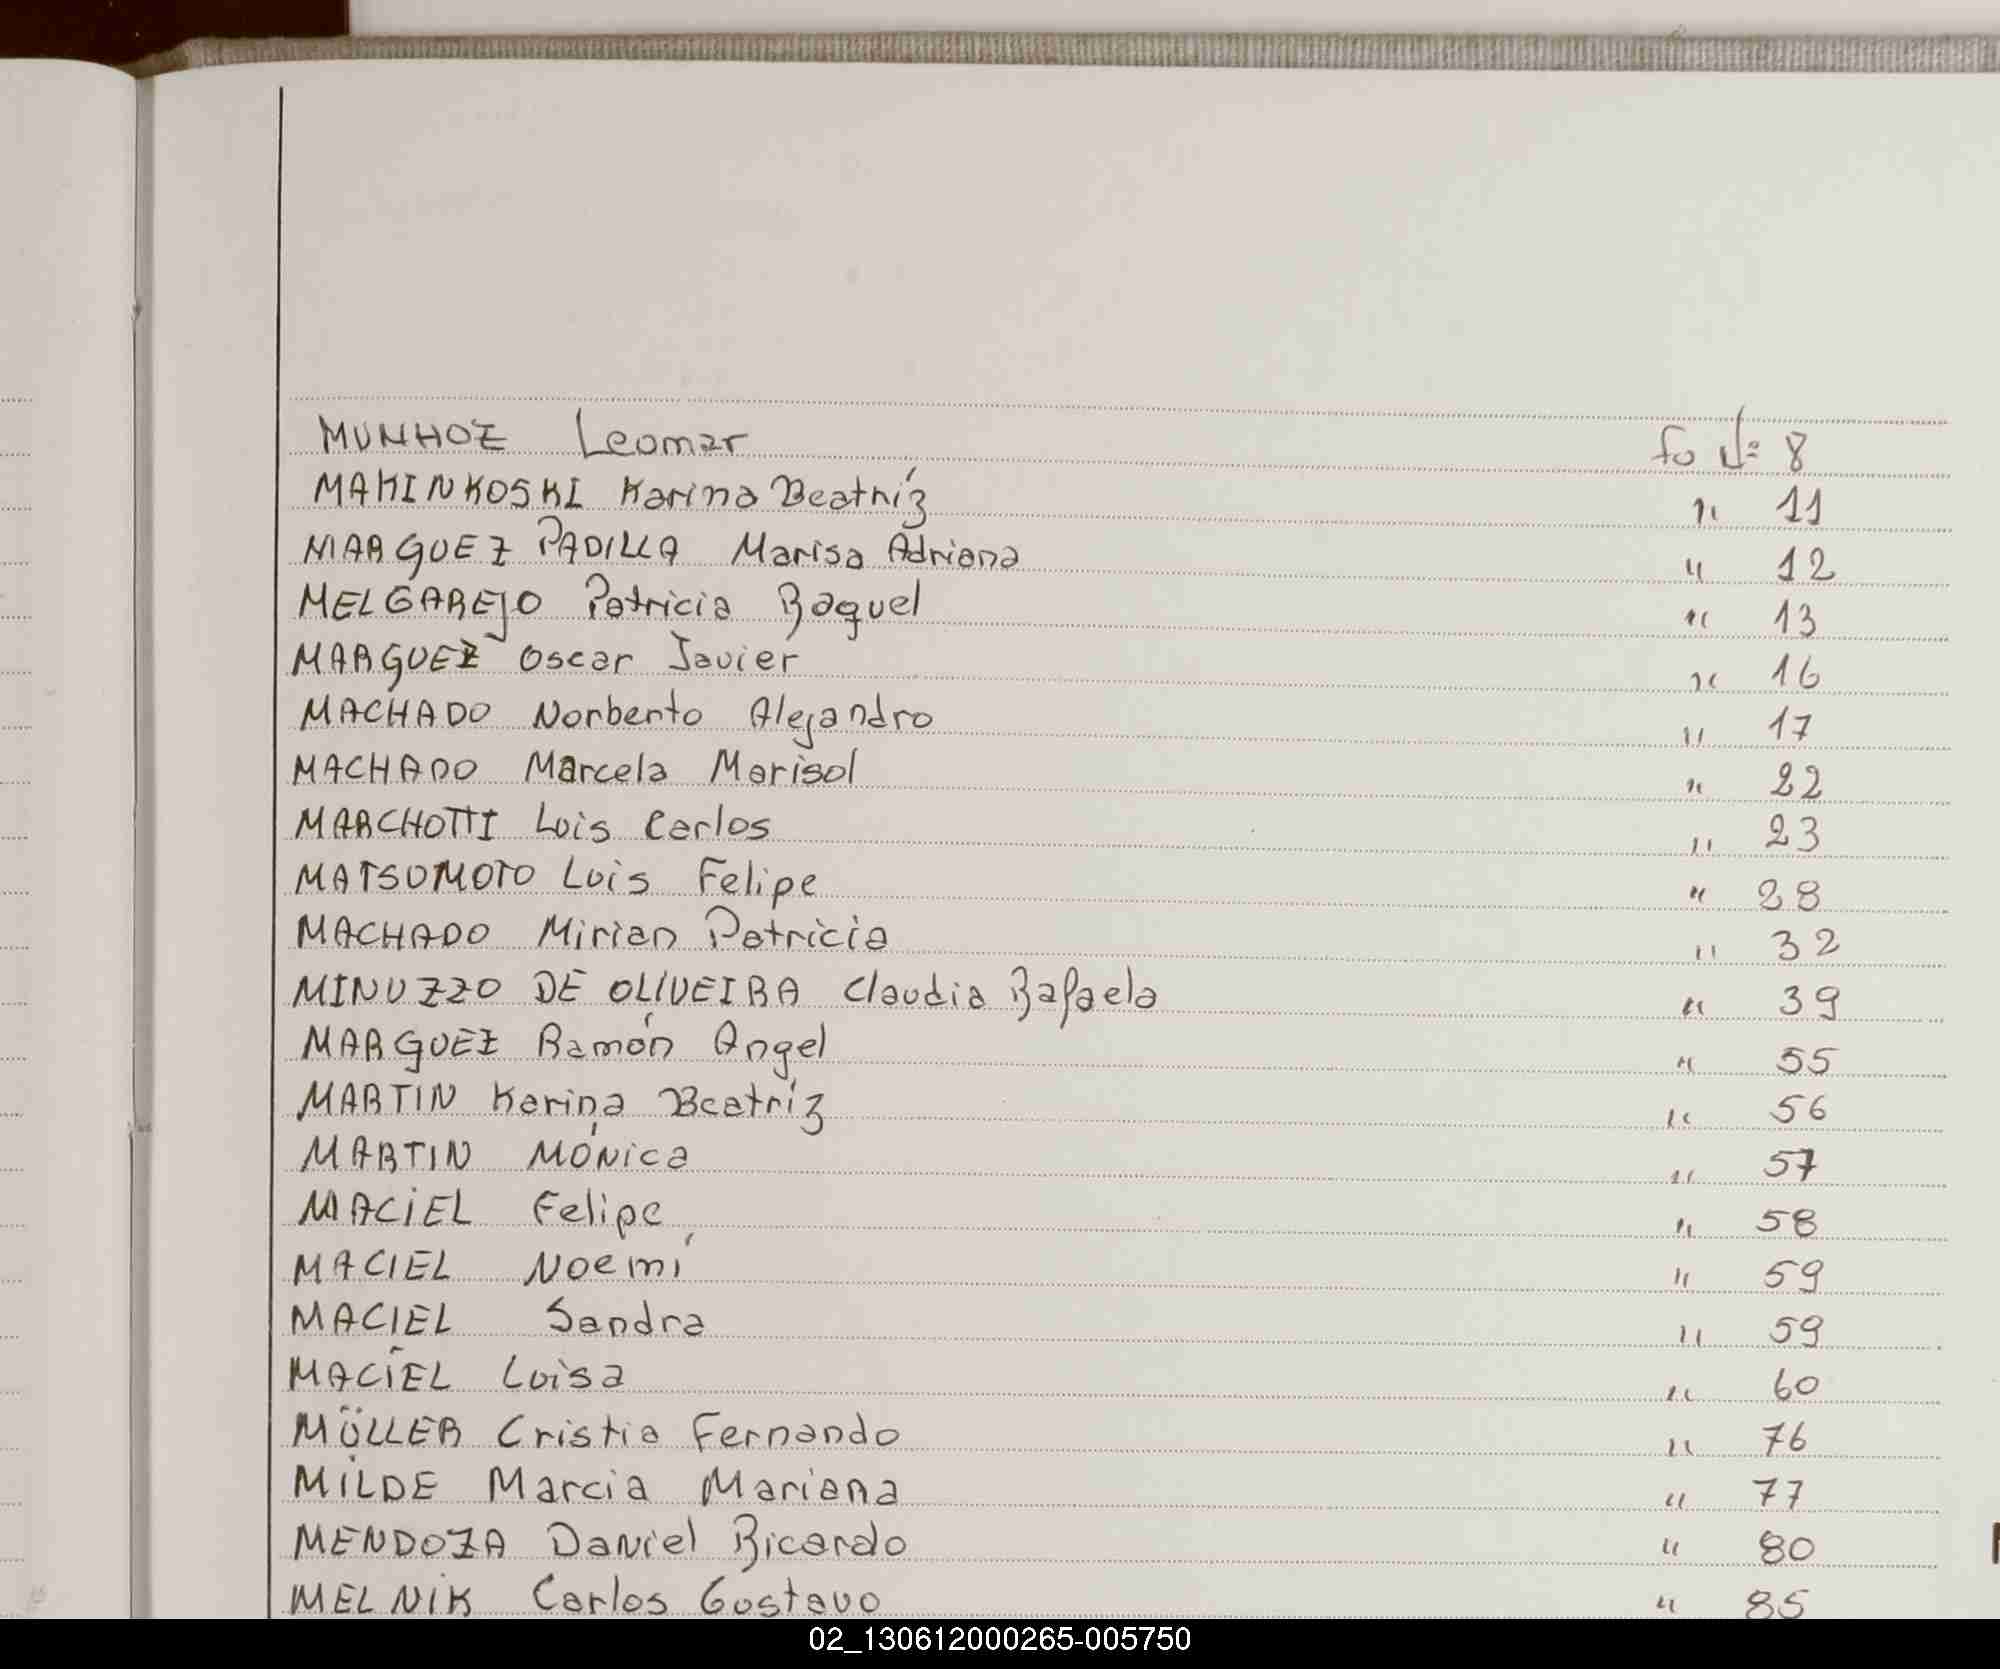 MUNHOZ Leomar fo Nº 8
MAKINKOSKI Karina Beatríz " 11
MARQUEZ PADILLA Marisa Adriana " 12
MELGAREJO Patricia Raquel " 13
MARQUEZ Oscar Javier " 16
MACHADO Norberto Alejandro " 17
MACHADO Marcela Marisol " 22
MARCHOTTI Luis Carlos " 23
MATSUMOTO Luis Felipe " 28
MACHADO Mirian Patricia " 32
MINUZZO DE OLIVEIRA Claudia Rafaela " 39
MARQUEZ Ramón Angel " 55
MARTIN Karina Beatríz " 56
MARTIN Mónica " 57
MACIEL Felipe " 58
MACIEL Noemí " 59
MACIEL Sandra " 59
MACIEL Luisa " 60
MÜLLER Cristia Fernando " 76
MILDE Marcia Mariana " 77
MENDOZA Daniel Ricardo " 80
MELNIK Carlos Gustavo " 85
02_130612000265-005750